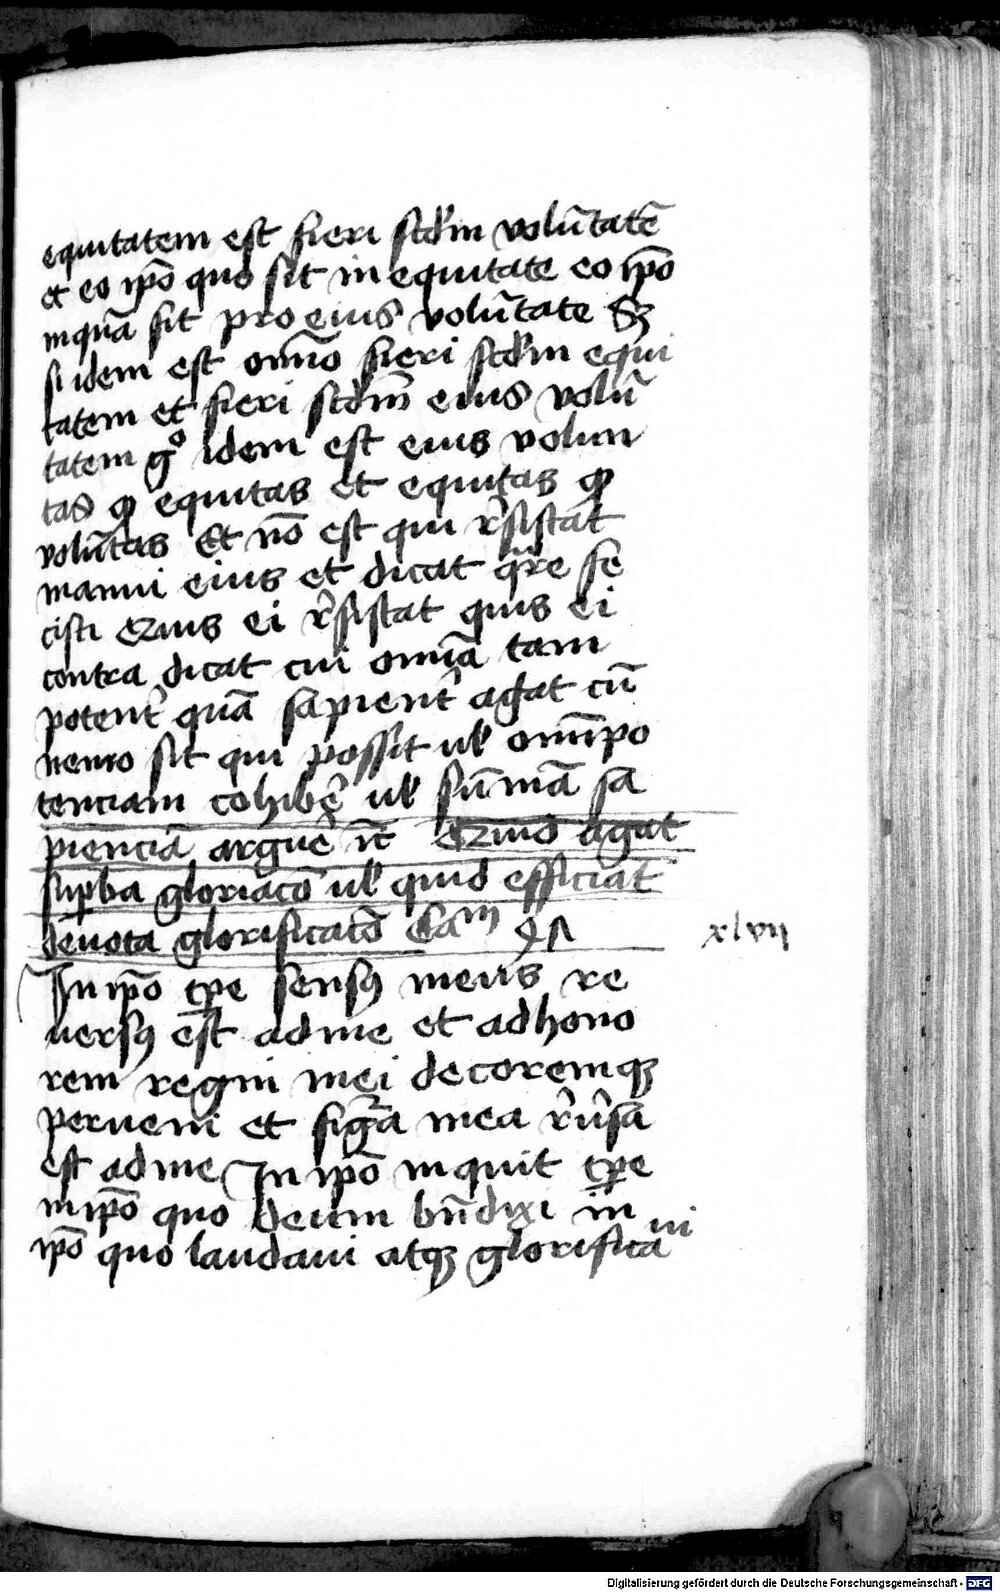 equitatem est fieri scd'm volūtatē
et eo ip̄o quo fit in equitate eo ip̄o
inquā fit pro eius volūtate Sꝫ
si idem est omīo fieri scd'm equi
tatem et fieri scd'm eius volū
tatem gͦ idem est eius volun
tas ꝙ equitas et equitas ꝙ
volūtas Et nō est qui r̄sistat
manui eius et dicat qͣre fe
cisti Quis ei r̄sistat quis ei
contra dicat cui omīa tam
potent' quā sapient' agat cū
nemo sit qui possit ul' omīpo
tenciam cohibe' ul' sūmā sa
pienciā argue' it' Quid agat
sup̱ba gloriacō ul' quid efficiat
deuota glorificacō Cam
xlvii
In ip̄o tp̱e sensꝰ meus re
uersꝰ est ad me et ad hono
rem regni mei decoremqꝫ
perueni et figͣa mea r̄u'sa
est ad me In ip̄o inquit tp̱e
in ip̄o quo deum bn̄dixi in
ip̄o quo laudaui atqꝫ glorifica
ui
Digitalisierung gefördert durch die Deutsche Forschungsgemeinschaft - DFG